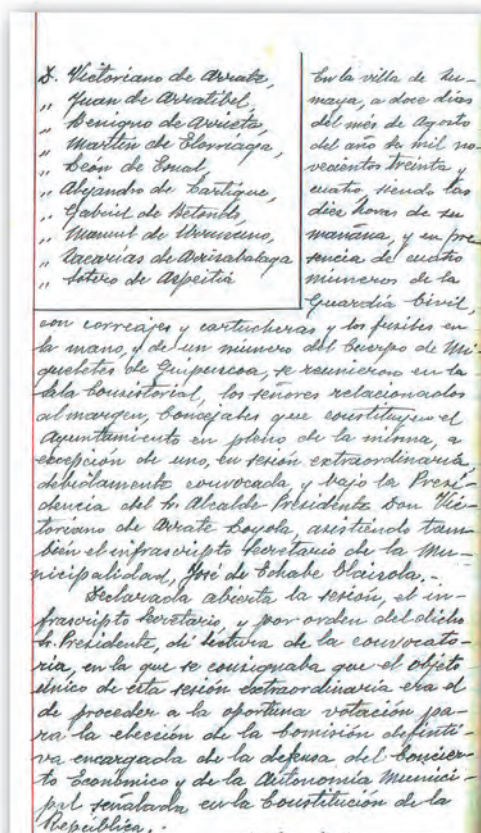 D. Victoriano de Arrate,
„ Juan de Arratibel,
„ Benigno de Arrieta,
„ Martín de Elorriaga,
„ León de Esnal,
„ Alejandro de Eartigue,
„ Gabriel de Betondo,
„ Manuel de
„ Zacarías de Arrizabalaga
„ Sotero de Azpeitia
En la villa de Zu-
maya, a doce días
del més de Agosto
del año de mil no-
vecientos treinta y
cuatro, siendo las
diez horas de su
mañana, y en pre-
sencia de cuatro
números de la
Guardia Civil,
con correajes y cartucheras y los fusiles en
la mano, y de un número del Cuerpo de Mi-
queletes de Guipuzcoa, se reunieron en la
Sala Consistorial, los señores relacionados
al margen, Concejales que constituyen el
Ayuntamiento en pleno de la misma, a
excepción de uno, en sesión extraordinaria,
debidamente convocada, y bajo la Presi-
dencia del Sr. Alcalde-Presidente Don Vic-
toriano de Arrate Loyola, asistiendo tam-
bién el infrascripto Secretario de la Mu-
nicipalidad, José de Echabe Olaizola.-
Declarada abierta la sesión, el in-
frascripto Secretario, y por orden del dicho
Sr. Presidente, di lectura de la convocato-
ria, en la que se consignaba que el objeto
único de esta sesión extraordinaria era el
de proceder a la oportuna votación pa-
ra la elección de la Comisión definiti-
va encargada de la defensa del Concier-
to Económico y de la Autonomía Munici-
pal señalada en la Constitución de la
República.-